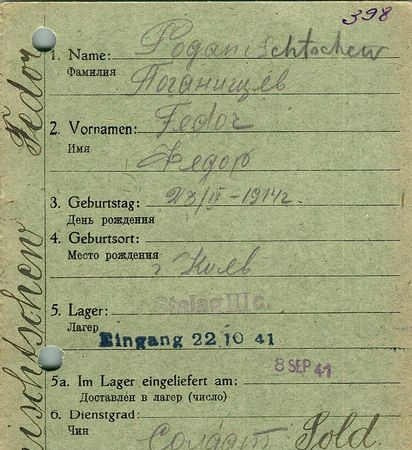 398
1. Name: Poganischtschew
Фамилия Поганищев
2. Vornamen: Fedor
Имя Федор
3. Geburtstag: 23/II-1914г.
День рождения
4. Geburtsort:
Место рождения г Киев
5. Lager: Stalag III c.
Лагер Eingang 22.10 41
8 SEP 41
5a. Im Lager eingeliefert am:
Доставлен в лагер (число)
6. Dienstgrad: Sold.
Чин Солдат
Fedor